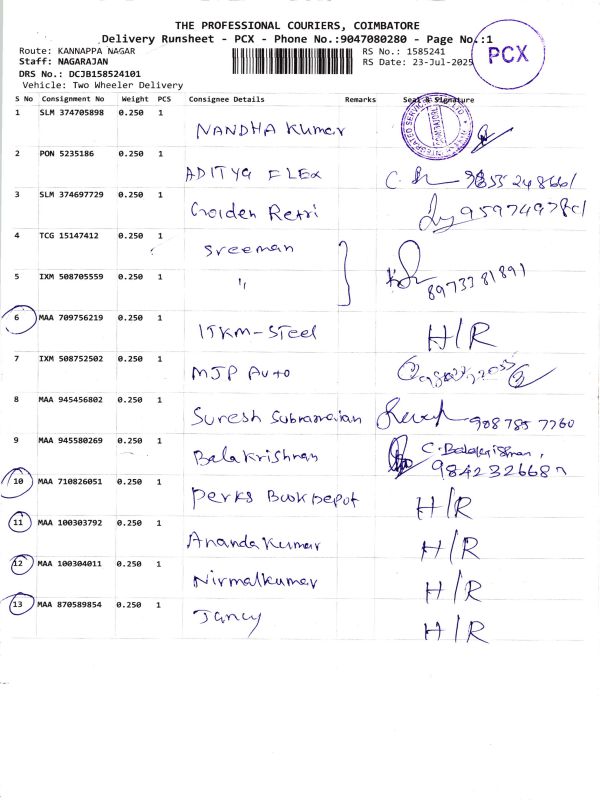 THE PROFESSIONAL COURIERS, COIMBATORE
Delivery Runsheet - PCX - Phone No.:9047080280 - Page No.:1
PCX
Route: KANNAPPA NAGAR RS No.: 1585241
Staff: NAGARAJAN RS Date: 23-Jul-2025
DRS No.: DCJB158524101
Vehicle: Two Wheeler Delivery
S No Consignment No Weight PCS Consignee Details Remarks Seal & Signature
1 SLM 374705898 0.250 1
NANDHA Kumar
2 PON 5235186 0.250 1
ADITYA FLEX
3 SLM 374697729 0.250 1
4 TCG 15147412 0.250 1
Sreeman
5 IXM 508705559 0.250 1
"
8973381891
6 MAA 709756219 0.250 1
ITKM-Steel H/R
7 IXM 508752502 0.250 1
MJP Auto
8 MAA 945456802 0.250 1
Suresh Subramaian 908 785 7760
9 MAA 945580269 0.250 1
Balakrishnan
10 MAA 710826051 0.250 1
Perks Book Depot H/R
11 MAA 100303792 0.250 1
Ananda Kumar H/R
12 MAA 100304011 0.250 1
Nirmalkumar H/R
13 MAA 870589854 0.250 1
Jancy H/R